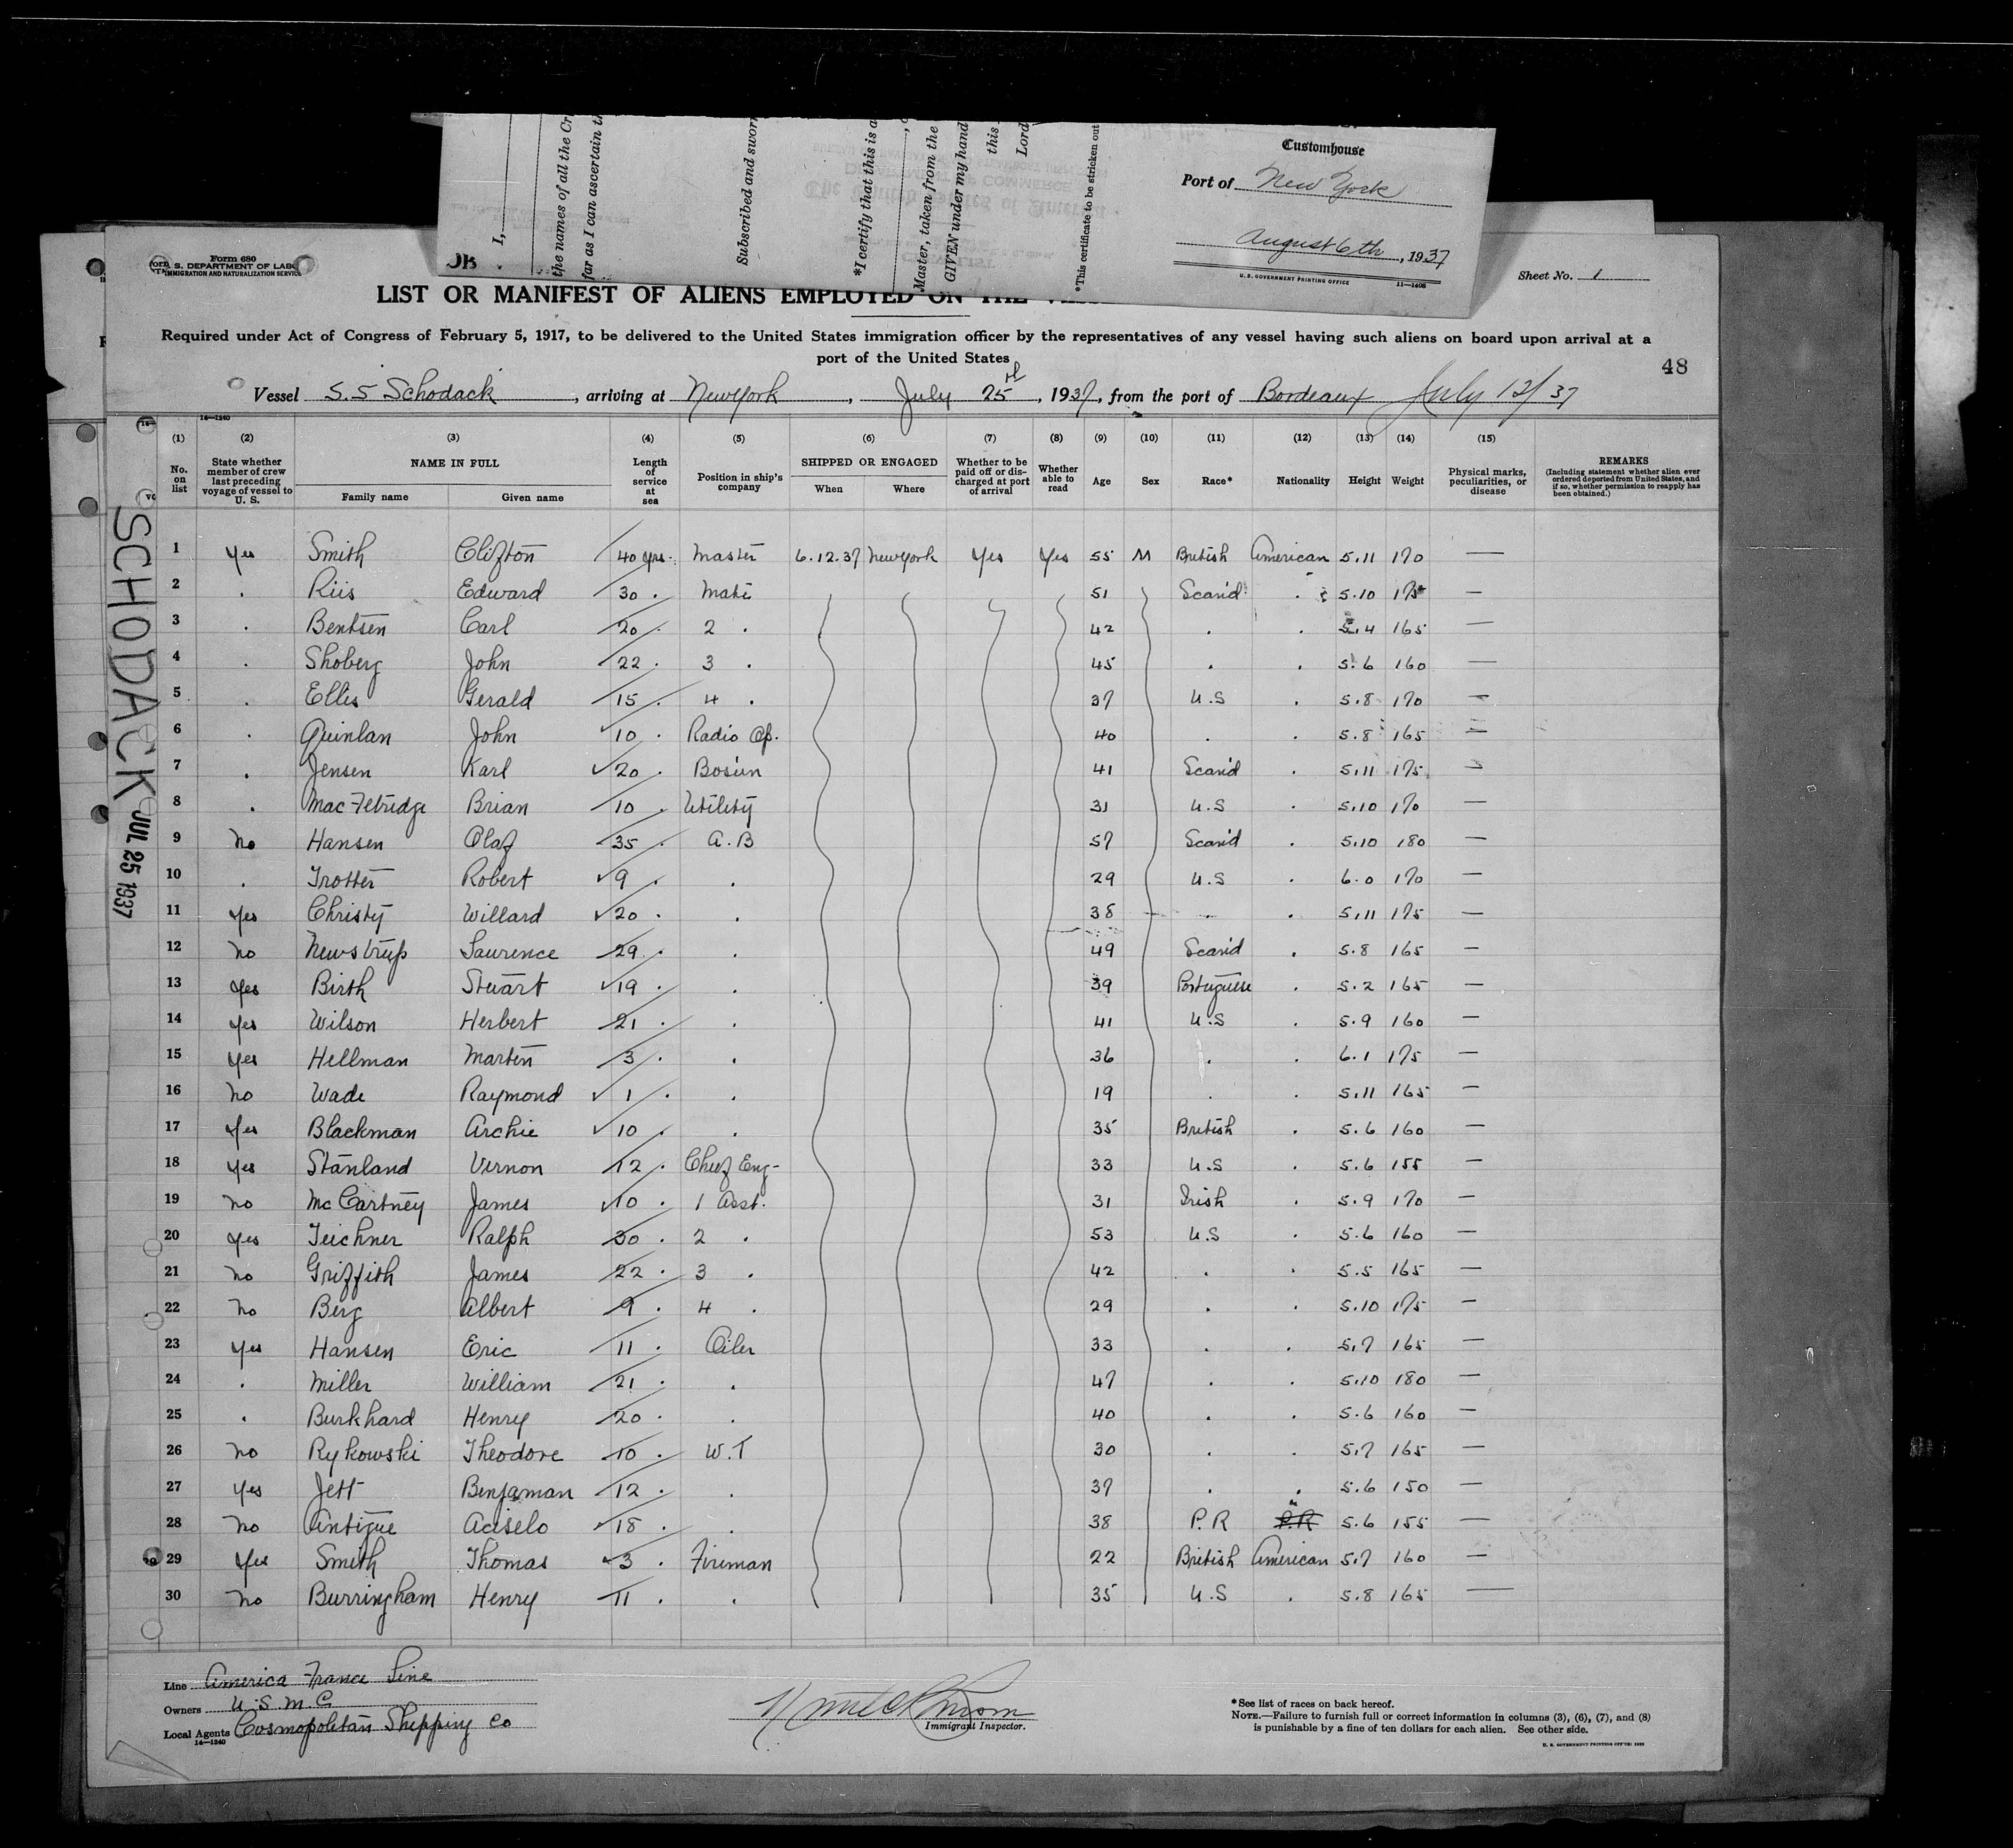 Customhouse
Port of New York
August 6th, 1937
U. S. GOVERNMENT PRINTING OFFICE 11—1408
I,
the names of all the Cr
far as I can ascertain th
Subscribed and sworn
*I certify that this is a
Master, taken from the
GIVEN under my hand
this
Lord
*This certificate to be stricken out
Form 680
U. S. DEPARTMENT OF LABO
IMMIGRATION AND NATURALIZATION SERVICE
Sheet No. 1
LIST OR MANIFEST OF ALIENS EMPLOYED ON THE
Required under Act of Congress of February 5, 1917, to be delivered to the United States immigration officer by the representatives of any vessel having such aliens on board upon arrival at a
port of the United States
48
Vessel S.S Schodack, arriving at New York, July 25, 1937, from the port of Bordeaux July 12/37
14—1240
(1) (2) (3) (4) (5) (6) (7) (8) (9) (10) (11) (12) (13) (14) (15)
No. on list State whether member of crew last preceding voyage of vessel to U. S. NAME IN FULL Family name Given name Length of service at sea Position in ship's company SHIPPED OR ENGAGED When Where Whether to be paid off or discharged at port of arrival Whether able to read Age Sex Race* Nationality Height Weight Physical marks, peculiarities, or disease REMARKS (Including statement whether alien ever ordered deported from United States, and if so, whether permission to reapply has been obtained.)
1 Yes Smith Clifton 40 yrs. Master 6.12.37 New York Yes Yes 55 M British American 5.11 170 —
2 . Riis Edward 30 . Mate 51 Scand . 5.10 175 —
3 . Bentsen Carl 20 . 2 . 42 . . 5.4 165 —
4 . Shoberg John 22 . 3 . 45 . . 5.6 160 —
5 . Ellis Gerald 15 . 4 . 37 U.S . 5.8 170 —
6 . Quinlan John 10 . Radio Op. 40 . . 5.8 165 —
7 . Jensen Karl 20 . Bosun 41 Scand . 5.11 175 —
8 . MacFetridge Brian 10 . Utility 31 U.S . 5.10 170 —
9 No Hansen Olaf 35 . A.B 57 Scand . 5.10 180 —
10 . Trotter Robert 9 . . 29 U.S . 6.0 170 —
11 Yes Christy Willard 20 . . 38 . . 5.11 175 —
12 No Newstrup Laurence 29 . . 49 Scand . 5.8 165 —
13 Yes Birth Stuart 19 . . 39 Portuguese . 5.2 165 —
14 Yes Wilson Herbert 21 . . 41 U.S . 5.9 160 —
15 Yes Hellman Martin 3 . . 36 . . 6.1 175 —
16 No Wade Raymond 1 . . 19 . . 5.11 165 —
17 Yes Blackman Archie 10 . . 35 British . 5.6 160 —
18 Yes Stanland Vernon 12 . Chief Eng- 33 U.S . 5.6 155 —
19 No McCartney James 10 . 1 Asst. 31 Irish . 5.9 170 —
20 Yes Teichner Ralph 30 . 2 . 53 U.S . 5.6 160 —
21 No Griffith James 22 . 3 . 42 . . 5.5 165 —
22 No Berg Albert 9 . 4 . 29 . . 5.10 175 —
23 Yes Hansen Eric 11 . Oiler 33 . . 5.7 165 —
24 . Miller William 21 . . 47 . . 5.10 180 —
25 . Burkhard Henry 20 . . 40 . . 5.6 160 —
26 No Rykowski Theodore 10 . W.T 30 . . 5.7 165 —
27 Yes Jett Benjaman 12 . . 37 . . 5.6 150 —
28 No Antique Aciselo 18 . . 38 P.R P.R 5.6 155 —
29 Yes Smith Thomas 3 . Fireman 22 British American 5.7 160 —
30 No Burringham Henry 11 . . 35 U.S . 5.8 165 —
SCHODACK
JUL 25 1937
Line America France Line
Owners U.S.M.C
Local Agents Cosmopolitan Shipping Co
14—1240
Immigrant Inspector.
*See list of races on back hereof.
NOTE.—Failure to furnish full or correct information in columns (3), (6), (7), and (8)
is punishable by a fine of ten dollars for each alien. See other side.